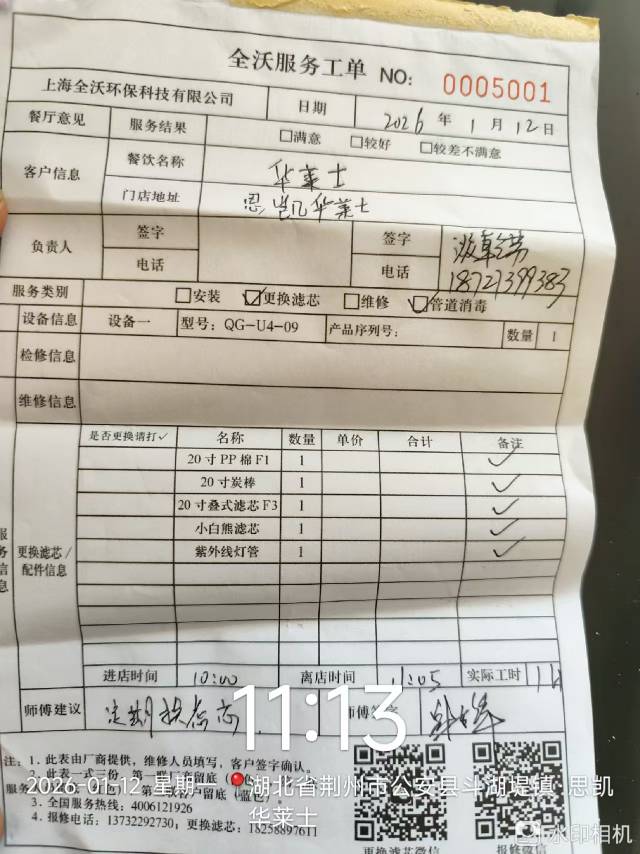 全沃服务工单 NO: 0005001
上海全沃环保科技有限公司 日期 2026 年 1 月 12 日
餐厅意见 服务结果 □满意 □较好 □较差不满意
客户信息 餐饮名称 华莱士
门店地址 思凯华莱士
负责人 签字 签字
电话 电话 18721399383
服务类别 □安装 ☑更换滤芯 □维修 ☑管道消毒
设备信息 设备一 型号: QG-U4-09 产品序列号: 数量 1
检修信息
维修信息
是否更换请打✓ 名称 数量 单价 合计 备注
20寸PP棉F1 1 ✓
20寸炭棒 1 ✓
20寸叠式滤芯F3 1 ✓
小白熊滤芯 1 ✓
紫外线灯管 1 ✓
服务信息
更换滤芯/
配件信息
进店时间 10:00 离店时间 11:05 实际工时
师傅建议 定期换滤芯 师傅签字
11:13
注: 1. 此表由厂商提供，维修人员填写，客户签字确认。
2. 此表一式三份，第一联
3. 全国服务热线: 4006121926
4. 报修电话: 13732292730; 更换滤芯: 18258897611
更换滤芯微信 报修微信
2026-01-12 星期一 湖北省荆州市公安县斗湖堤镇 思凯
华莱士
水印相机